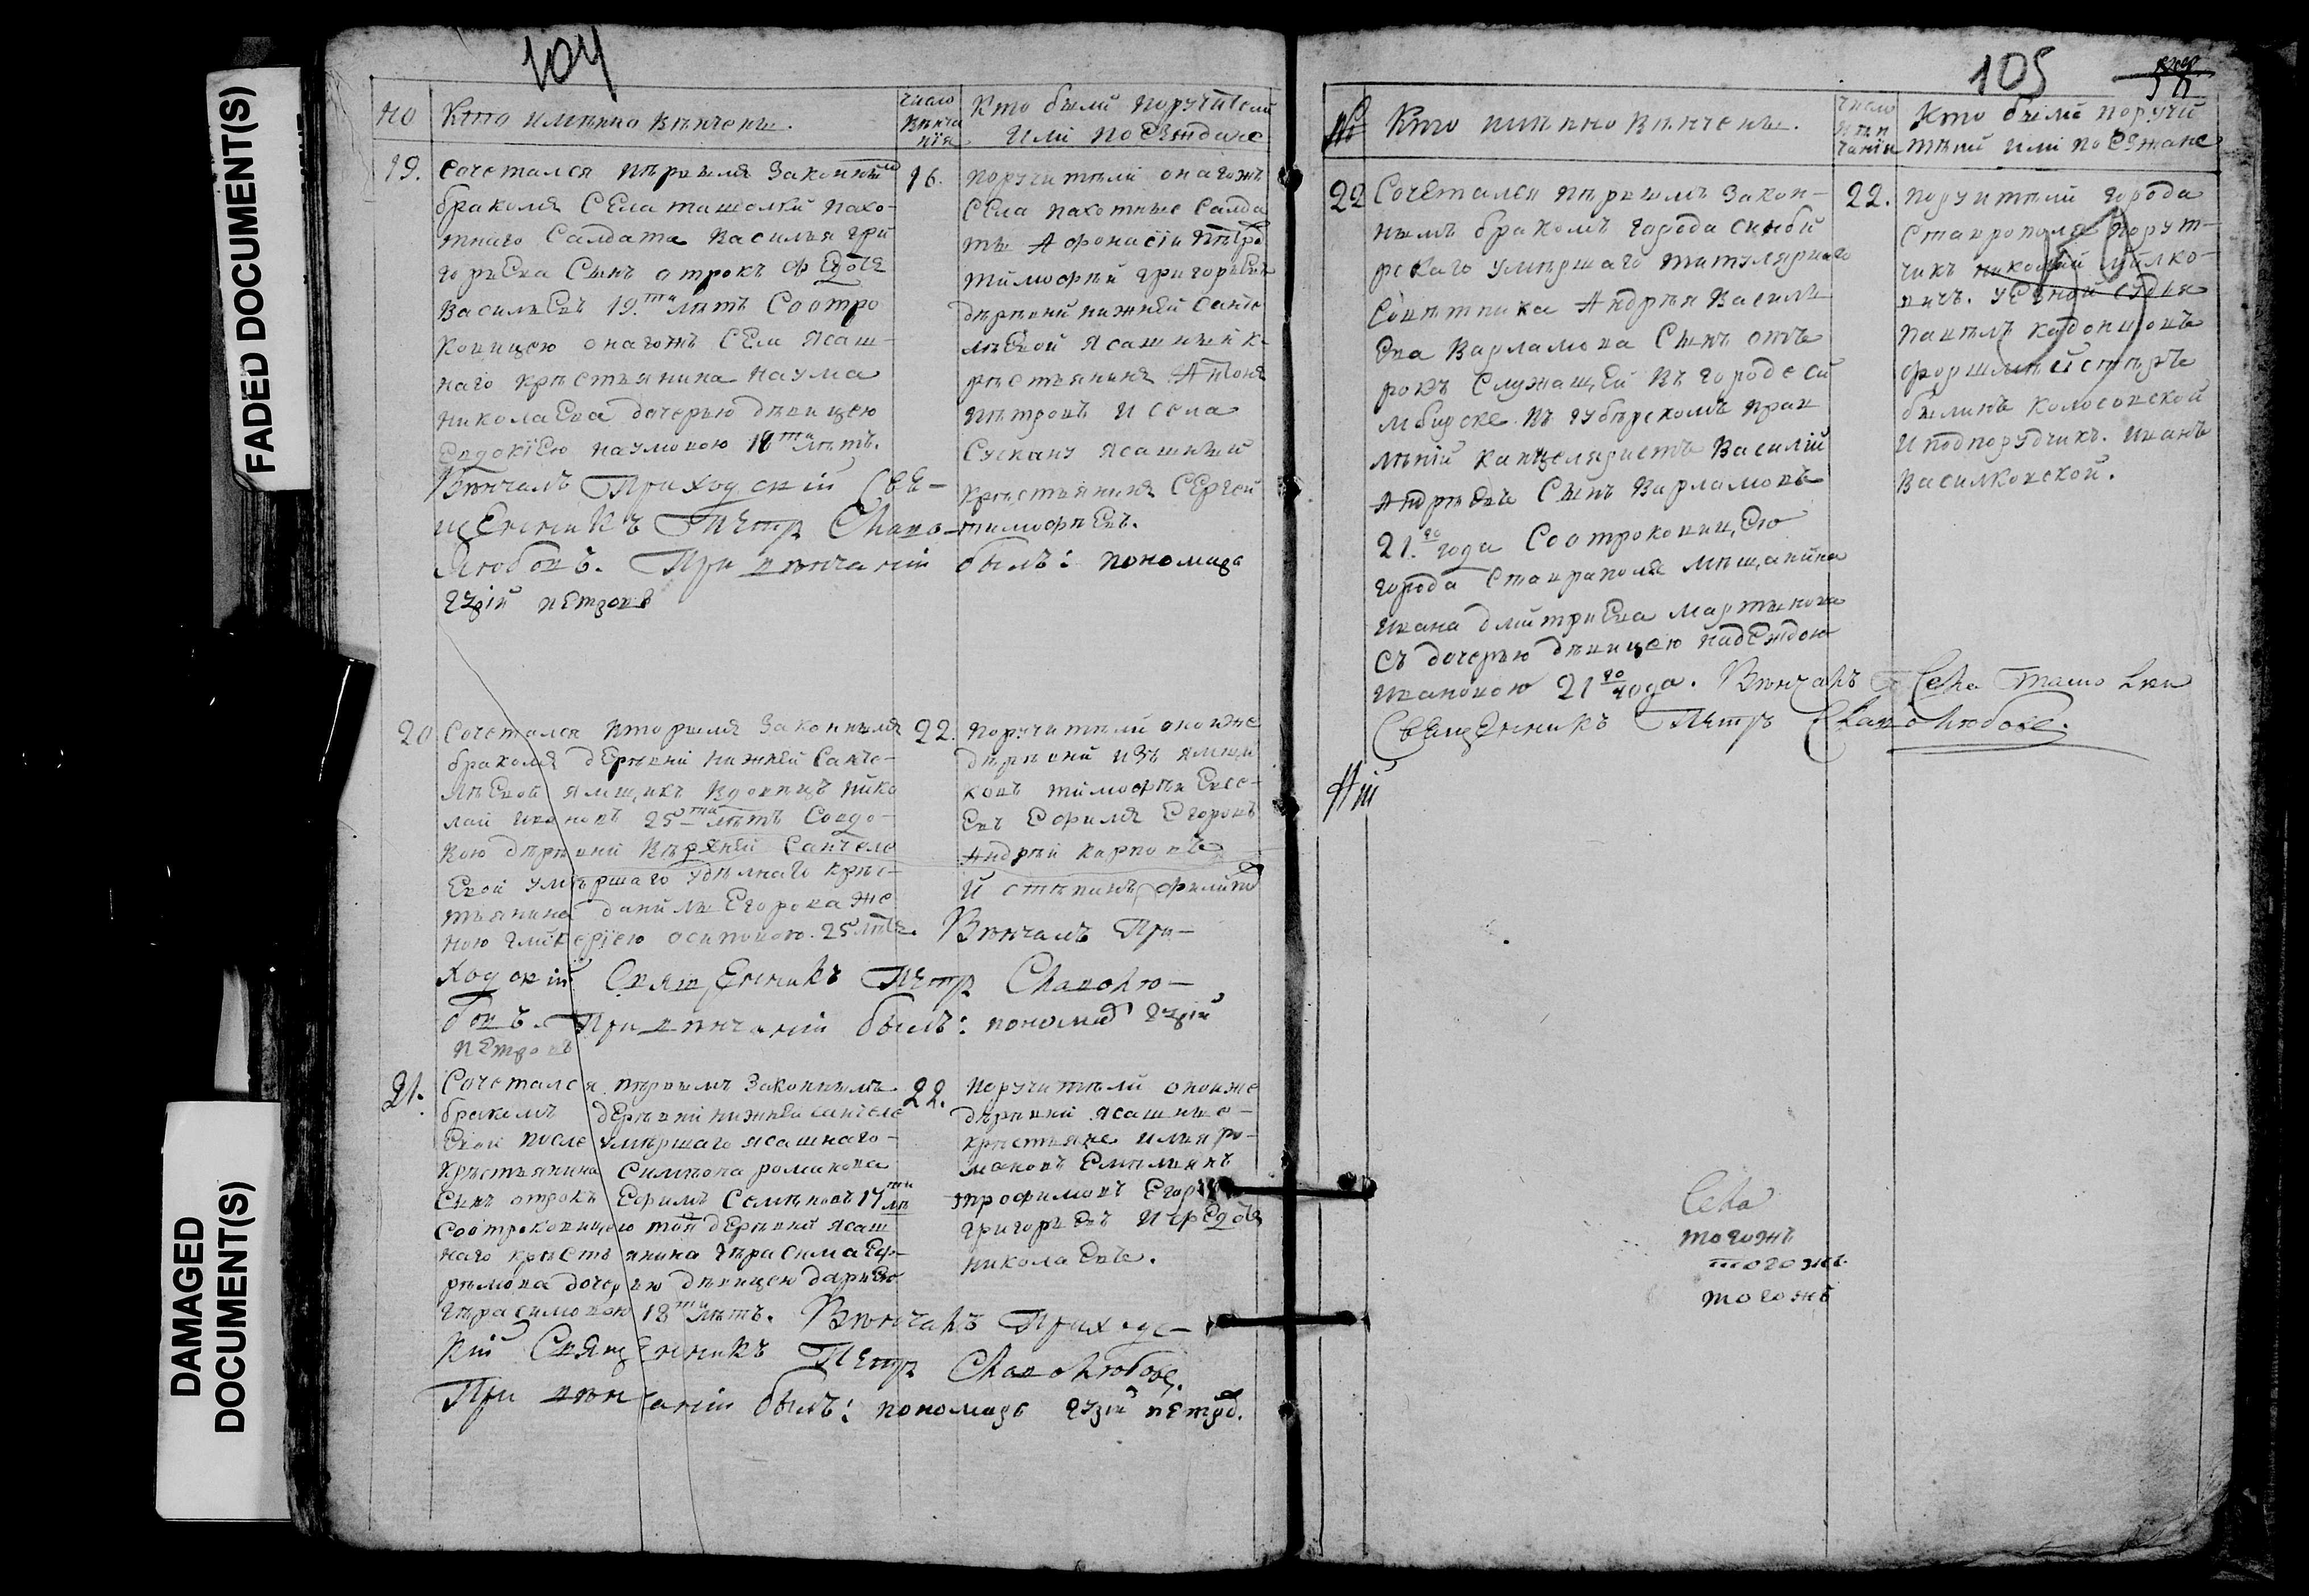 FADED DOCUMENT(S)
DAMAGED
DOCUMENT(S)
104
NO
Кто имѣнно вѣнчены.
число
вѣнча
нія
Кто были поручители
или посѣзжане
19.
Сочетался первымъ законнымъ
бракомъ села ташолки пахо-
тнаго салдата василья гри
горьева сынъ отрокъ Федотъ
васильевъ 19.ти лѣтъ соотро
ковицею онагожъ села ясаш-
наго крестьянина наума
николаева дочерью дѣвицею
евдокіею наумовою 18ти лѣтъ.
Вѣнчалъ Приходскій Свя-
щенникъ Петръ Славо-
любовъ. При вѣнчаніи былъ: пономарь
гурій петровъ
16.
поручители онагожъ
села пахотные салда
ты Афонасіи петро
тимофѣй григорьевъ
деревни нижней санче
лѣевой ясашный к-
рестьянинъ Антонъ
петровъ и села
сускану ясашный
крестьянинъ Сергей
тимофѣевъ.
20
Сочетался вторымъ законнымъ
бракомъ деревни нижней санче-
лѣевой ямщикъ вдовецъ нико
лай ивановъ 25ти лѣтъ совдо-
вою деревни верхней санчеле
евой умершаго удѣлнаго крес-
тьянина данилы Егорова же
ною гликеріею осиповою. 25 лѣтъ. Вѣнчалъ При-
ходскій Священникъ Петръ Славолю-
бовъ. При вѣнчаніи былъ: пономарь гурій
петровъ
22.
поручители оноиже
деревни изъ ямщи
ковъ тимофѣи Евсе-
евъ Ефимъ Егоровъ
Андрѣй карповъ
и степанъ филипо
21.
Сочетался первымъ законнымъ
бракомъ деревни нижней санчеле
евои после умершаго ясашнаго
крестьянина симеона романова
сынъ отрокъ Ефимъ Семеновъ 17ти лѣ
соотроковицею той деревни ясаш
наго крестьянина герасима Еф-
ремова дочерью дѣвицею дарьею
герасимовою 18ти лѣтъ. Вѣнчалъ Приходс-
кій Священникъ Петръ Славолюбовъ.
При вѣнчаніи былъ: пономарь гурій петровъ.
22.
поручители оноиже
деревни ясашные
крестьяне илья ро-
мановъ Емельянъ
трофимовъ Егоръ
григорьевъ и Федотъ
николаевъ.
105
№
Кто имѣнно вѣнчены.
число
вѣн
чаніи
Кто были поручи
тели или посѣзжане
22
Сочетался первымъ закон-
нымъ бракомъ города синби
рскаго умершаго титулярнаго
совѣтника Андрѣя Василь
ева Варламова сынъ отъ
рокъ служащей въ городе си
мбирске въ губерскомъ прав
леніи канцеляристъ Василій
Андрѣевъ сынъ Варламовъ
21.го года соотроковицею
города ставраполя мещанина
ивана дмитриева мартынова
съ дочерью дѣвицею надеждою
ивановою 21го года. Вѣнчалъ Села Ташолки
Священникъ Петръ Славолюбовъ.
22.
поручители города
ставрополя порут-
чикъ николай милко-
вичъ. уезной судья
павелъ
форшмейстеръ
колосовской
и подпорудчикъ. иванъ
василковской.
Села
тогожъ
тогожъ
тогожъ